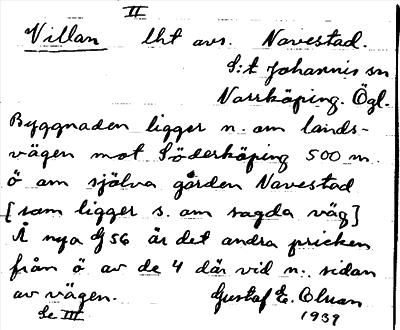 II
Villan lht avs. Navestad.
S:t Johannis sn
Norrköping. Ögl.
Byggnaden ligger n. om lands-
vägen mot Söderköping 500 m.
ö om själva gården Navestad
[som ligger s. om sagda väg]
Å nya G 56 är det andra pricken
från ö av de 4 där vid n. sidan
av vägen. Gustaf E. Olsson
Se III 1939